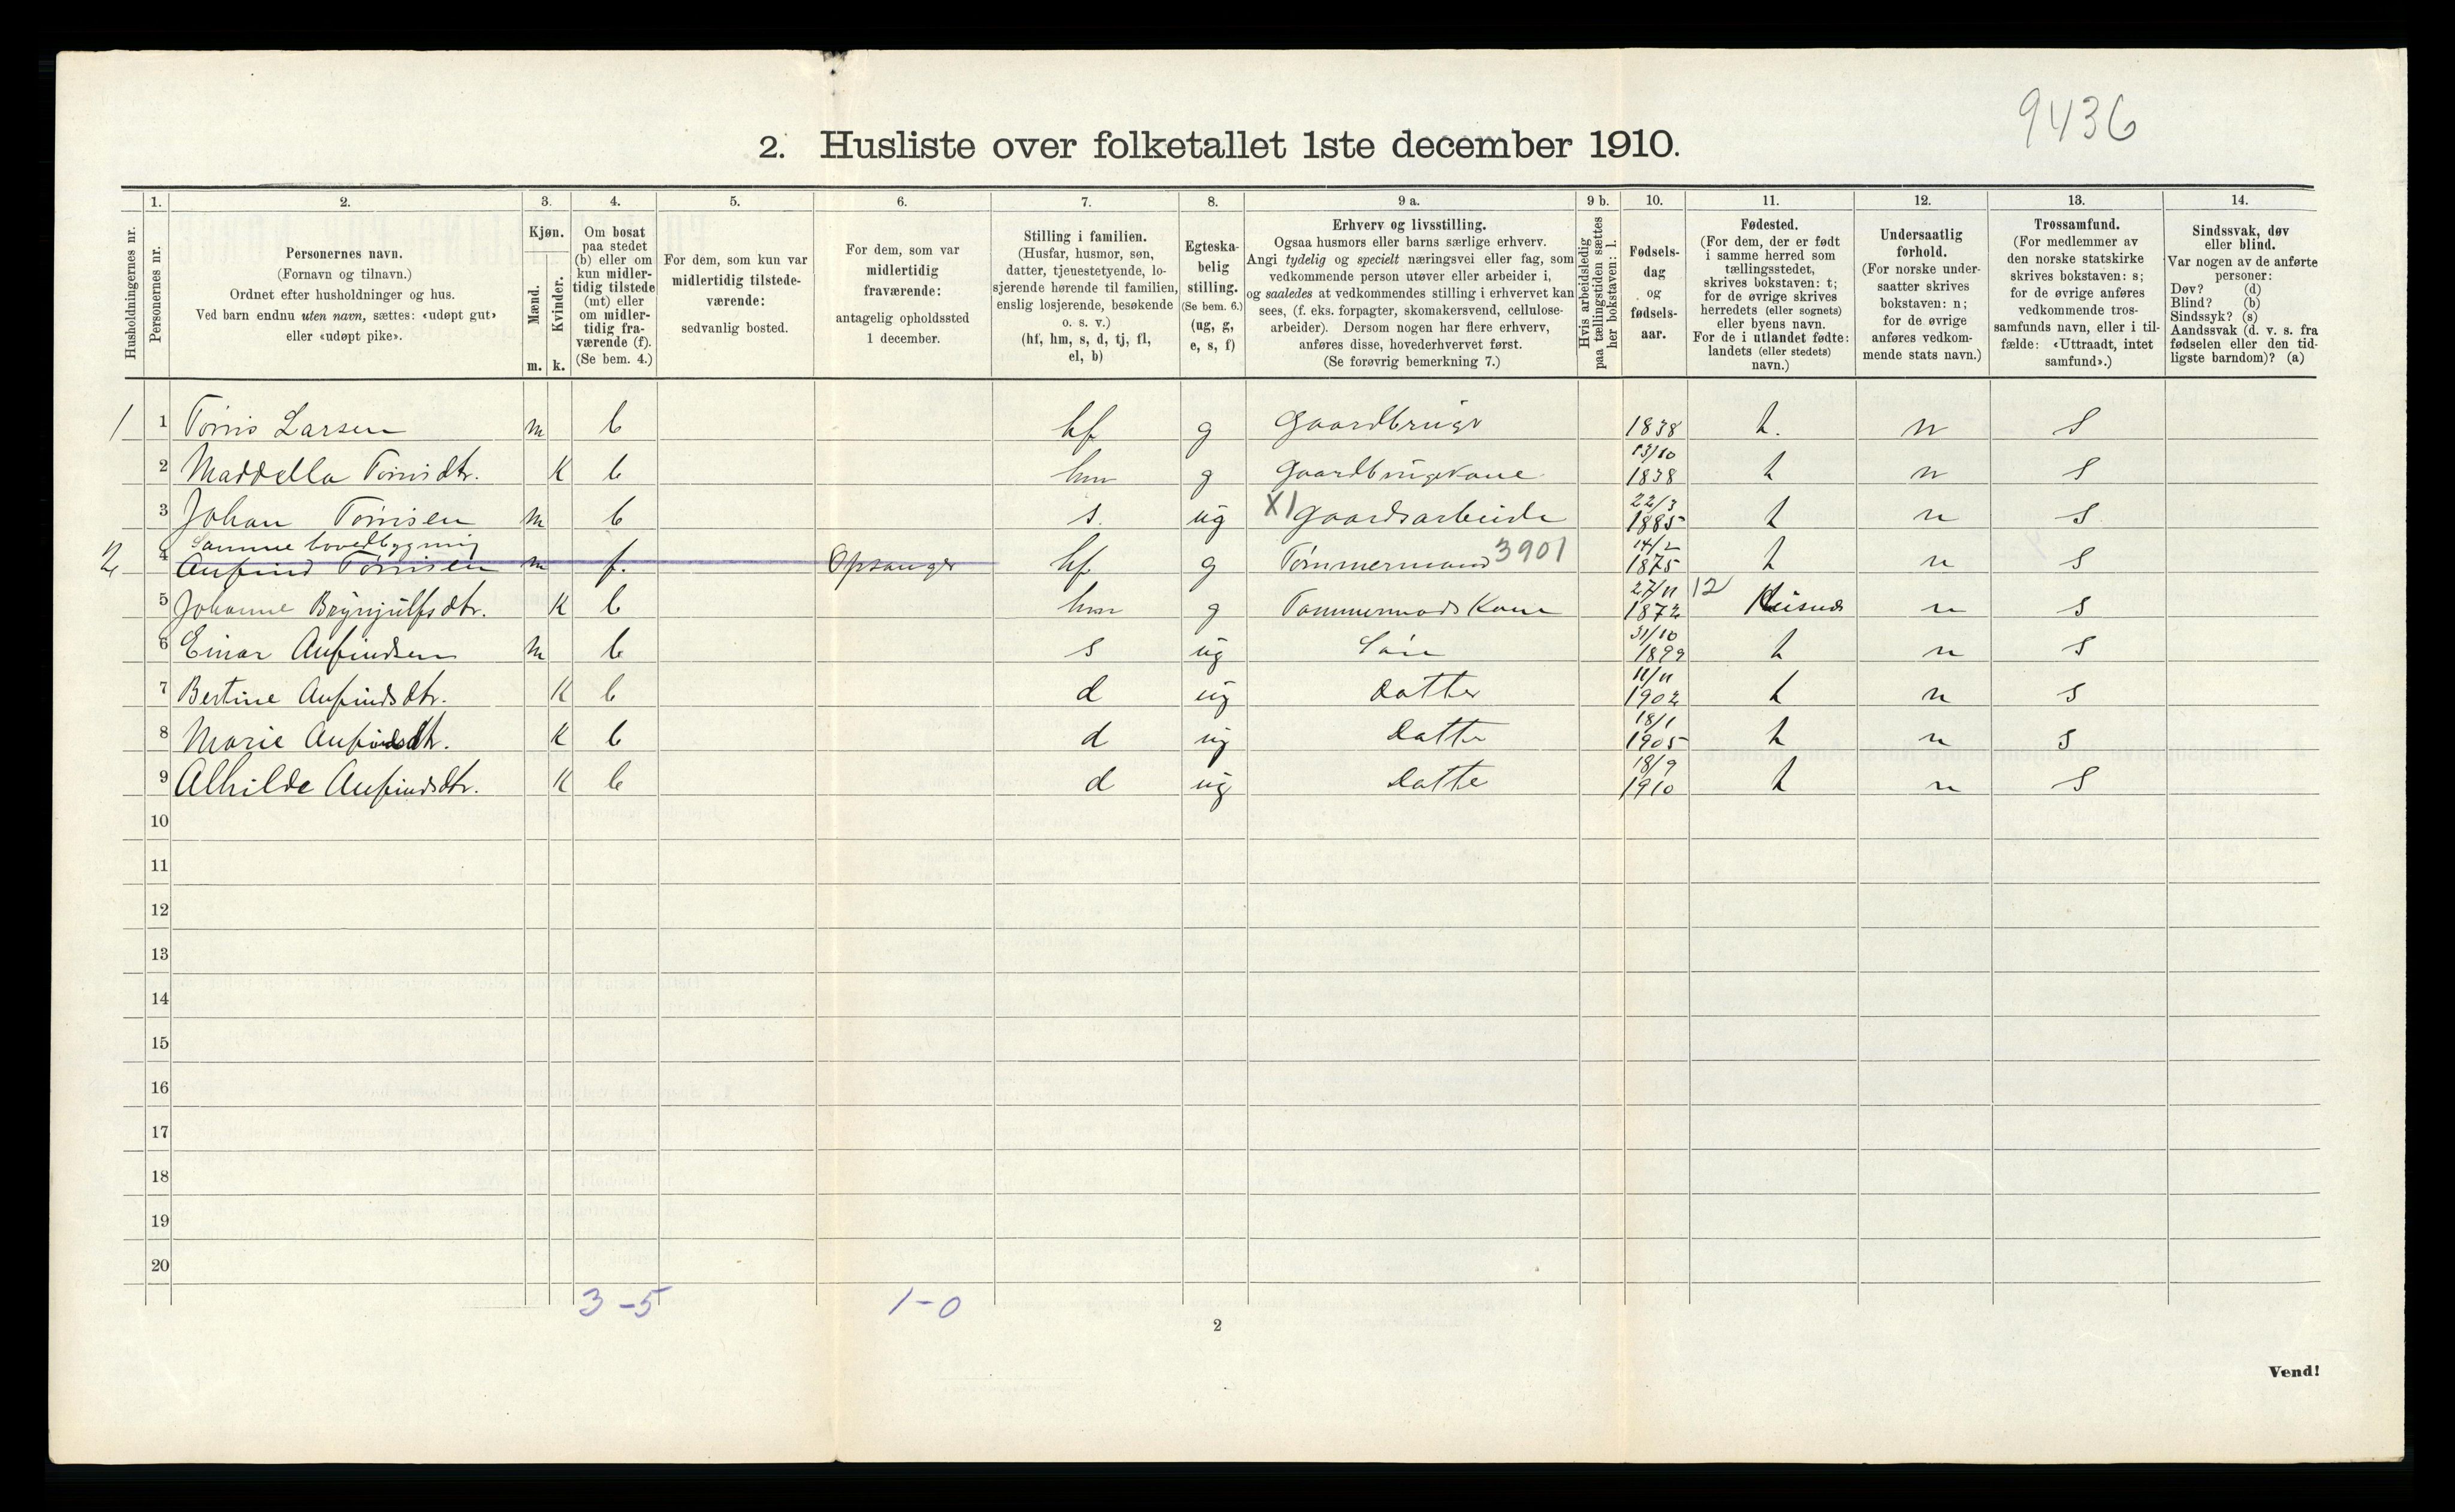 9436
2. Husliste over folketallet 1ste december 1910.
Husholdningernes nr.
1. Personernes nr.
2. Personernes navn.
(Fornavn og tilnavn.)
Ordnet efter husholdninger og hus.
Ved barn endnu uten navn, sættes: «udøpt gut»
eller «udøpt pike».
3. Kjøn.
Mænd. m.
Kvinder. k.
4. Om bosat
paa stedet
(b) eller om
kun midler-
tidig tilstede
(mt) eller
om midler-
tidig fra-
værende (f).
(Se bem. 4.)
5. For dem, som kun var
midlertidig tilstede-
værende:
sedvanlig bosted.
6. For dem, som var
midlertidig
fraværende:
antagelig opholdssted
1 december.
7. Stilling i familien.
(Husfar, husmor, søn,
datter, tjenestetyende, lo-
sjerende hørende til familien,
enslig losjerende, besøkende
o. s. v.)
(hf, hm, s, d, tj, fl,
el, b)
8. Egteska-
belig
stilling.
(Se bem. 6.)
(ug, g,
e, s, f)
9 a. Erhverv og livsstilling.
Ogsaa husmors eller barns særlige erhverv.
Angi tydelig og specielt næringsvei eller fag, som
vedkommende person utøver eller arbeider i,
og saaledes at vedkommendes stilling i erhvervet kan
sees, (f. eks. forpagter, skomakersvend, cellulose-
arbeider). Dersom nogen har flere erhverv,
anføres disse, hovederhvervet først.
(Se forøvrig bemerkning 7.)
9 b. Hvis arbeidsledig
paa tællingstiden sættes
her bokstaven: l.
10. Fødsels-
dag
og
fødsels-
aar.
11. Fødested.
(For dem, der er født
i samme herred som
tællingsstedet,
skrives bokstaven: t;
for de øvrige skrives
herredets (eller sognets)
eller byens navn.
For de i utlandet fødte:
landets (eller stedets)
navn.)
12. Undersaatlig
forhold.
(For norske under-
saatter skrives
bokstaven: n;
for de øvrige
anføres vedkom-
mende stats navn.)
13. Trossamfund.
(For medlemmer av
den norske statskirke
skrives bokstaven: s;
for de øvrige anføres
vedkommende tros-
samfunds navn, eller i til-
fælde: «Uttraadt, intet
samfund».)
14. Sindssvak, døv
eller blind.
Var nogen av de anførte
personer:
Døv? (d)
Blind? (b)
Sindssyk? (s)
Aandssvak (d. v. s. fra
fødselen eller den tid-
ligste barndom)? (a)
1 1 Tönis Larsen m b hf g Gaardbruger 1838 t. n s
2 Maddella Tönisdtr. K b hm g Gaardbrugerkone 13/10 1838 t n s
3 Johan Tönisen m b s. ug X1 Gaardsarbeider 22/3 1885 t n s
Samme hovedbygning
2 4 Anfind Tönisen m f. Opsanger hf g Tømmermand 3901 14/2 1875 t n s
5 Johanne Brynjulfsdtr. K b hm g Tømmermands Kone 27/11 1872 12 n s
6 Einar Anfindsen m b s ug Søn 31/10 1899 t n s
7 Bertine Anfindsdtr. K b d ug datter 11/11 1902 t n s
8 Marie Anfindsdtr. K b d ug datter 18/1 1905 t n s
9 Alhilde Anfindsdtr. K b d ug datter 18/9 1910 t n s
10
11
12
13
14
15
16
17
18
19
20
3-5 1-0
2
Vend!